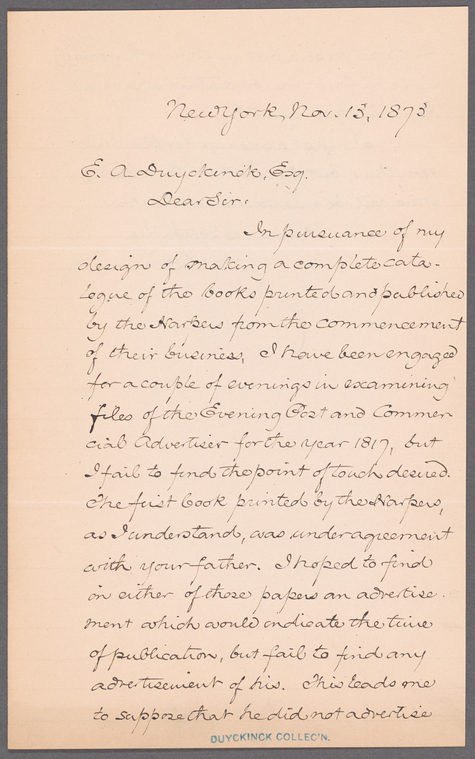 New York, Nov. 13, 1873
E. A. Duyckinck, Esq.
Dear Sir:
In pursuance of my
design of making a complete cata-
logue of the books printed and published
by the Harpers from the commencement
of their business, I have been engaged
for a couple of evenings in examining
files of the Evening Post and Commer
cial Advertiser for the year 1817, but
I fail to find the point of touch desired.
The first book printed by the Harpers,
as I understand, was under agreement
with your father. I hoped to find
in either of those papers an advertise-
ment which would indicate the time
of publication, but fail to find any
advertisement of his. This leads me
to suppose that he did not advertise
DUYCKINCK COLLEC'N.